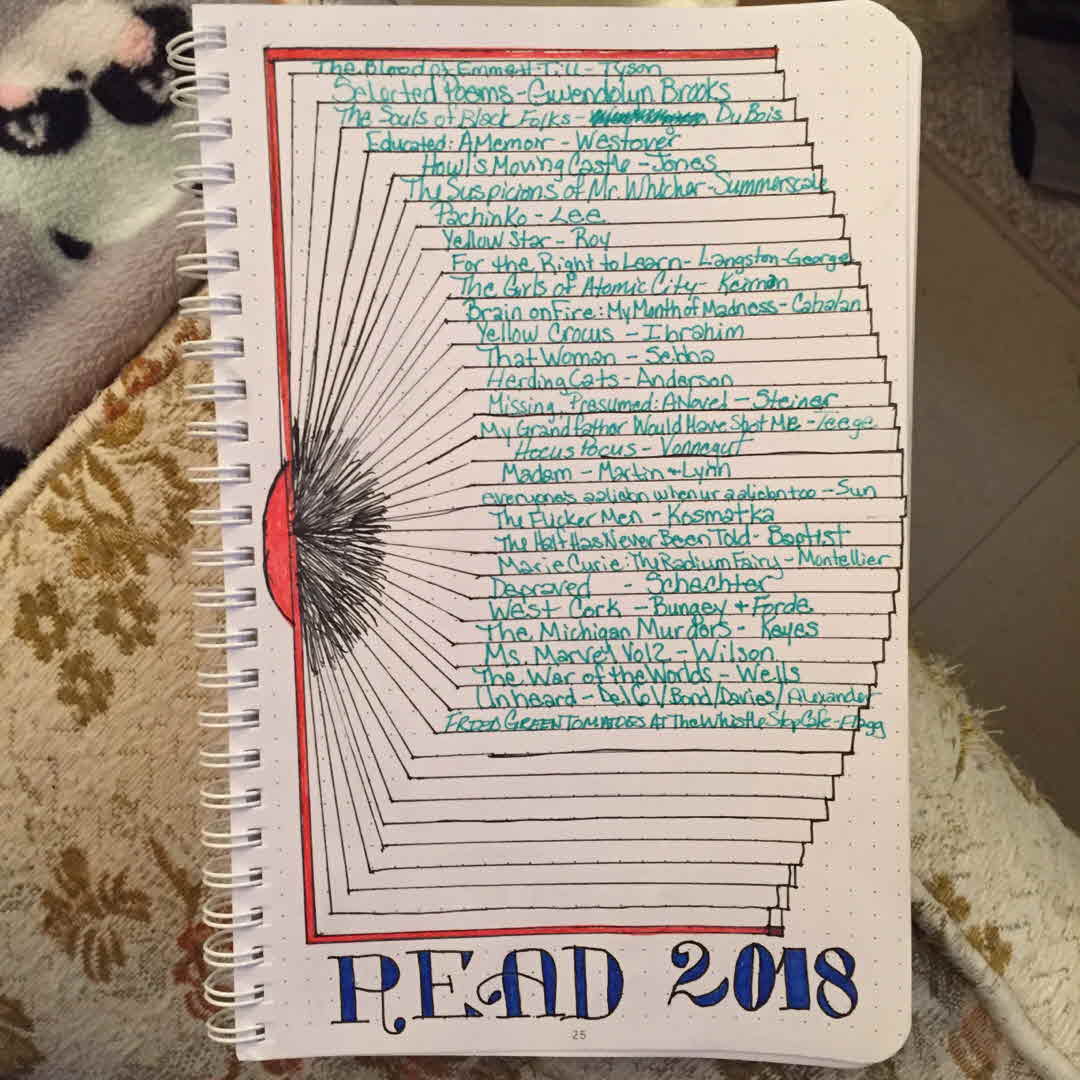 The Blood of Emmett Till - Tyson
Selected Poems - Gwendolyn Brooks
The Souls of Black Folks - Du Bois
Educated: A Memoir - Westover
Howl's Moving Castle - Jones
The Suspicions of Mr. Whicher - Summerscale
Pachinko - Lee
Yellow Star - Roy
For the Right to Learn - Langston-George
The Girls of Atomic City - Keirnan
Brain on Fire: My Month of Madness - Cahalan
Yellow Crocus - Ibrahim
That Woman - Sebba
Herding Cats - Anderson
Missing, Presumed: A Novel - Steiner
My Grandfather Would Have Shot Me - Teege
Hocus Pocus - Vonnegut
Madam - Martin + Lynn
everyone's a aliebn when ur a aliebn too - Sun
The Flicker Men - Kosmatka
The Half Has Never Been Told - Baptist
Marie Curie: The Radium Fairy - Montellier
Depraved - Schechter
West Cork - Bungey + Forde
The Michigan Murders - Keyes
Ms. Marvel Vol 2 - Wilson
The War of the Worlds - Wells
Unheard - Del Col/Bond/Davies/Alexander
FRIED GREEN TOMATOES AT The Whistle Stop Cafe - Flagg
READ 2018
25